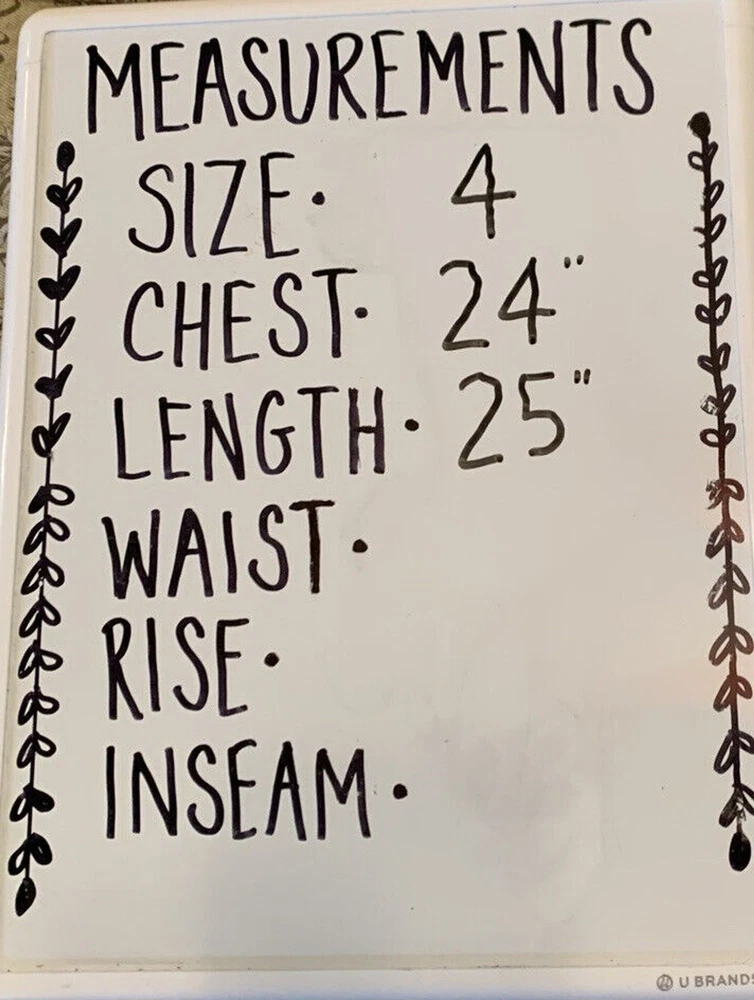 MEASUREMENTS
SIZE· 4
CHEST· 24"
LENGTH· 25"
WAIST·
RISE·
INSEAM·
U BRANDS